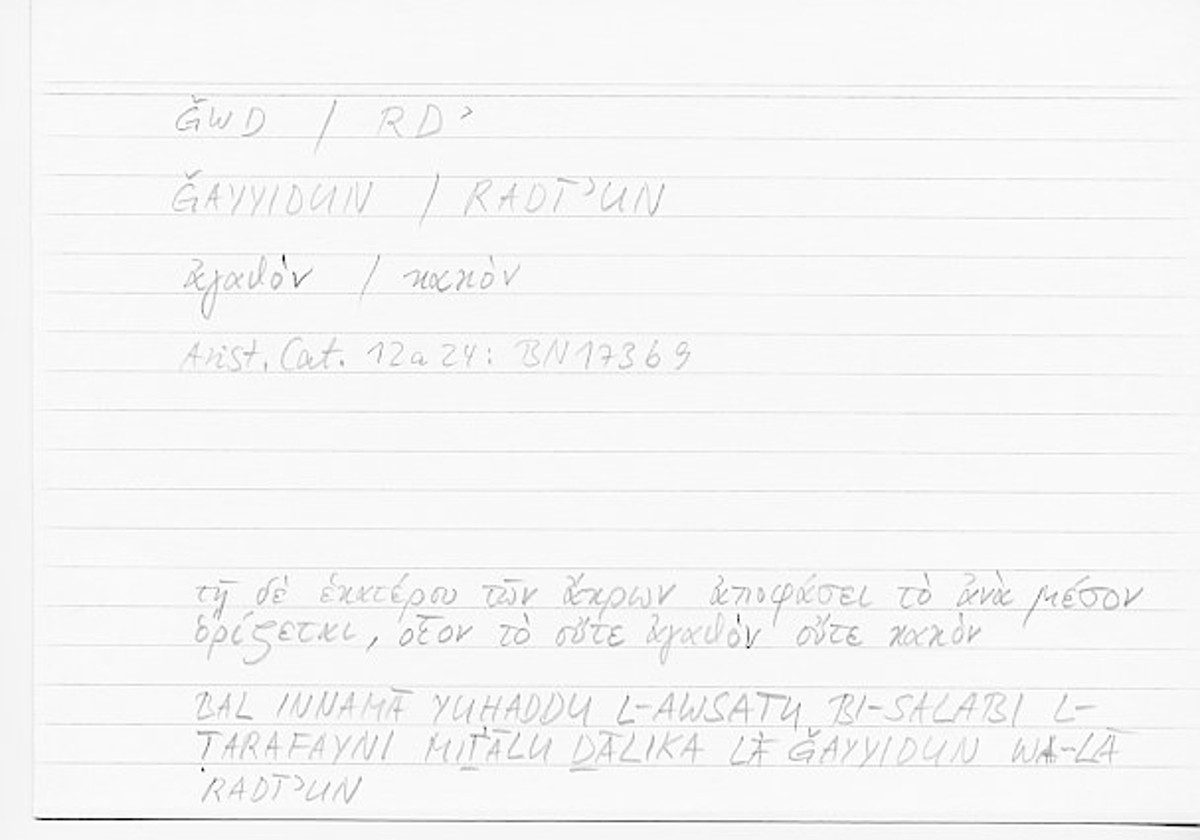 ǦWD / RDʾ
ǦAYYIDUN / RADĪʾUN
ἀγαθόν / κακόν
Arist. Cat. 12a24: BN17369
τῇ δὲ ἑκατέρου τῶν ἄκρων ἀποφάσει τὸ ἀνὰ μέσον
ὁρίζεται, οἷον τὸ οὔτε ἀγαθὸν οὔτε κακὸν
BAL INNAMĀ YUHADDU L-AWSATU BI-SALABI L-
ṬARAFAYNI MIṮĀLU ḎĀLIKA LĀ ǦAYYIDUN WA-LĀ
RADĪʾUN